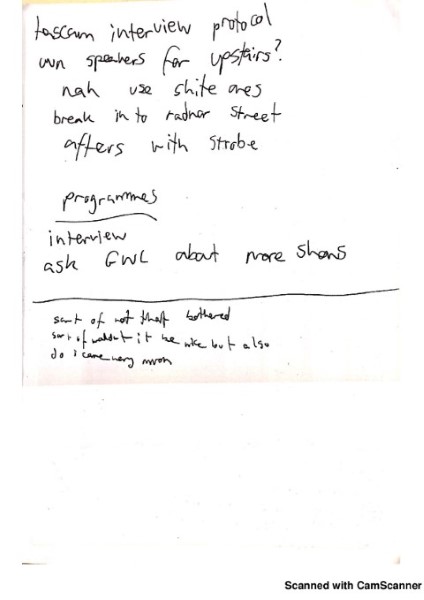 tascam interview protocol
own speakers for upstairs?
nah use shite ones
break in to radnor street
afters with strobe
programmes
interview
ask GWL about more shows
sort of not that bothered
sort of wouldn't it be nice but also
do I care very much
Scanned with CamScanner